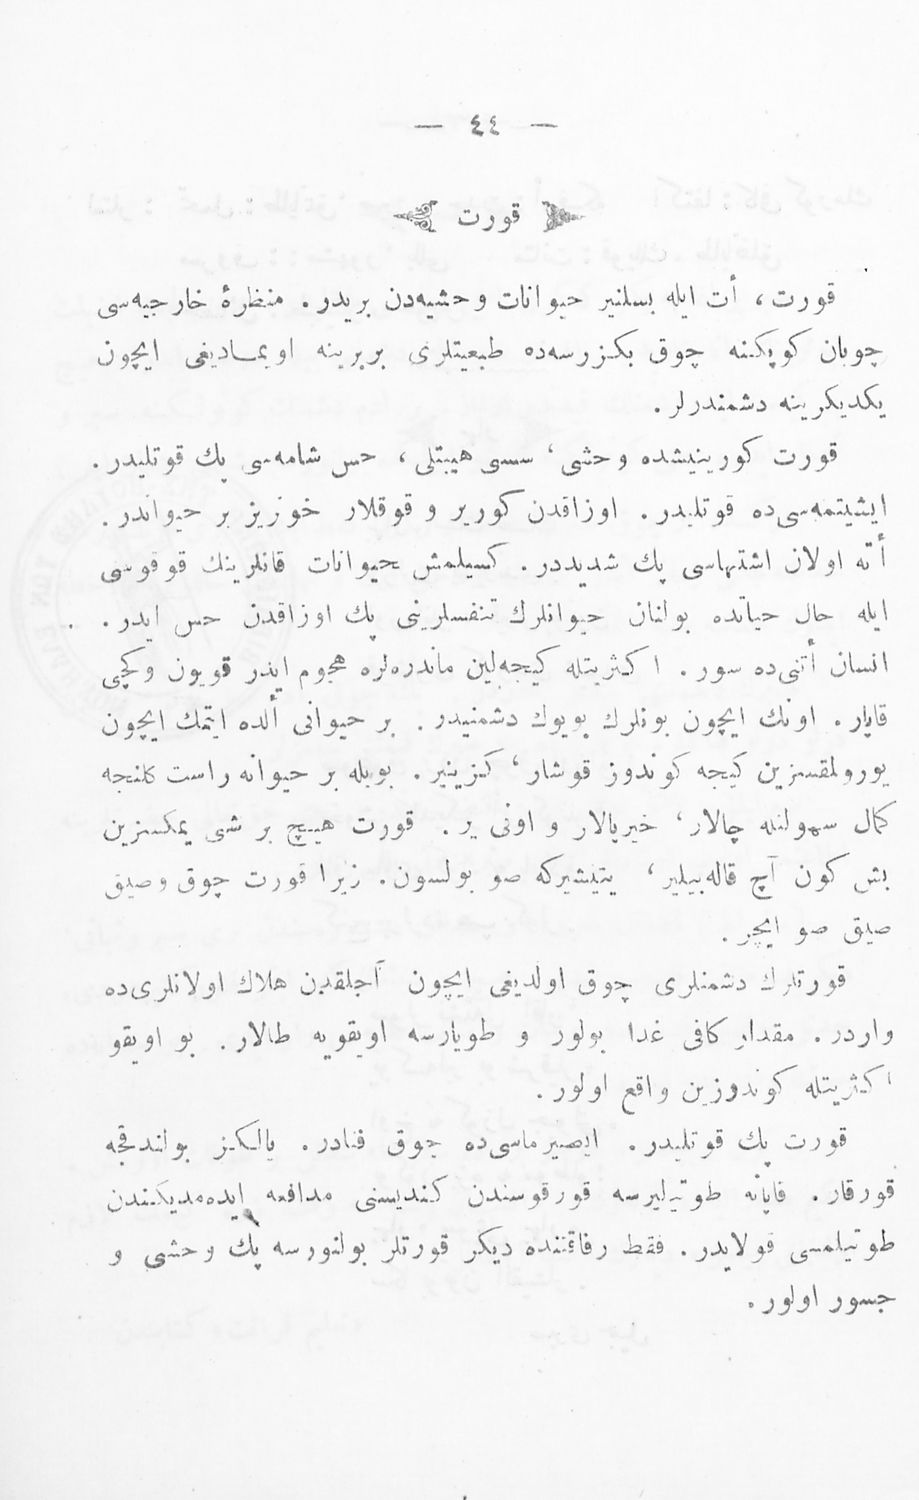 — ٤٤ —
قورت
قورت، أت ايله بسلنير حيوانات وحشيه‌دن بريدر. منظرهٔ خارجيه‌سى
چوبان كوپكنه چوق بكزرسه‌ده طبيعتلرى بربرينه اويمــاديغى ايچون
يكديكرينه دشمندرلر.
قورت كورينيشده وحشى، سسى هيبتلى، حس شامه‌سى پك قوتليدر.
ايشيتمه‌سى‌ده قوتليدر. اوزاقدن كورير و قوقلار خونريز بر حيواندر.
أته اولان اشتهاسى پك شديددر. كسيلمش حيوانات قانلرينك قوقوسى
ايله حال حياتده بولنان حيوانلرك تنفسلرينى پك اوزاقدن حس ايدر.
انسان أتنى‌ده سور. اكثريتله كيجه‌لين ماندره‌لره هجوم ايدر قويون وكچى
قاپار. اونك ايچون بونلرك بويوك دشمنيدر. بر حيوانى ألده ايتمك ايچون
يورولمقسزين كيجه كوندوز قوشار، كزينير. بويله بر حيوانه راست كلنجه
كمال سهولتله چالار، خيرپالار و اونى ير. قورت هيــچ بر شى يمكسزين
بش كون آچ قاله‌بيلير، يتيشيركه صو بولسون. زيرا قورت چوق وصيق
صيق صو ايچر.
قورتلرك دشمنلرى چوق اولديغى ايچون آجلقدن هلاك اولانلرى‌ده
واردر. مقدار كافى غدا بولور و طويارسه اويقويه طالار. بو اويقو
اكثريتله كوندوزين واقع اولور.
قورت پك قوتليدر. ايصيرماسى‌ده چوق فنادر. يالكز بولندقجه
قورقار. قاپانه طوتيليرسه قورقوسندن كنديسنى مدافعه ايده‌مديكندن
طوتيلمسى قولايدر. فقط رفاقتنده ديكر قورتلر بولنورسه پك وحشى و
جسور اولور.